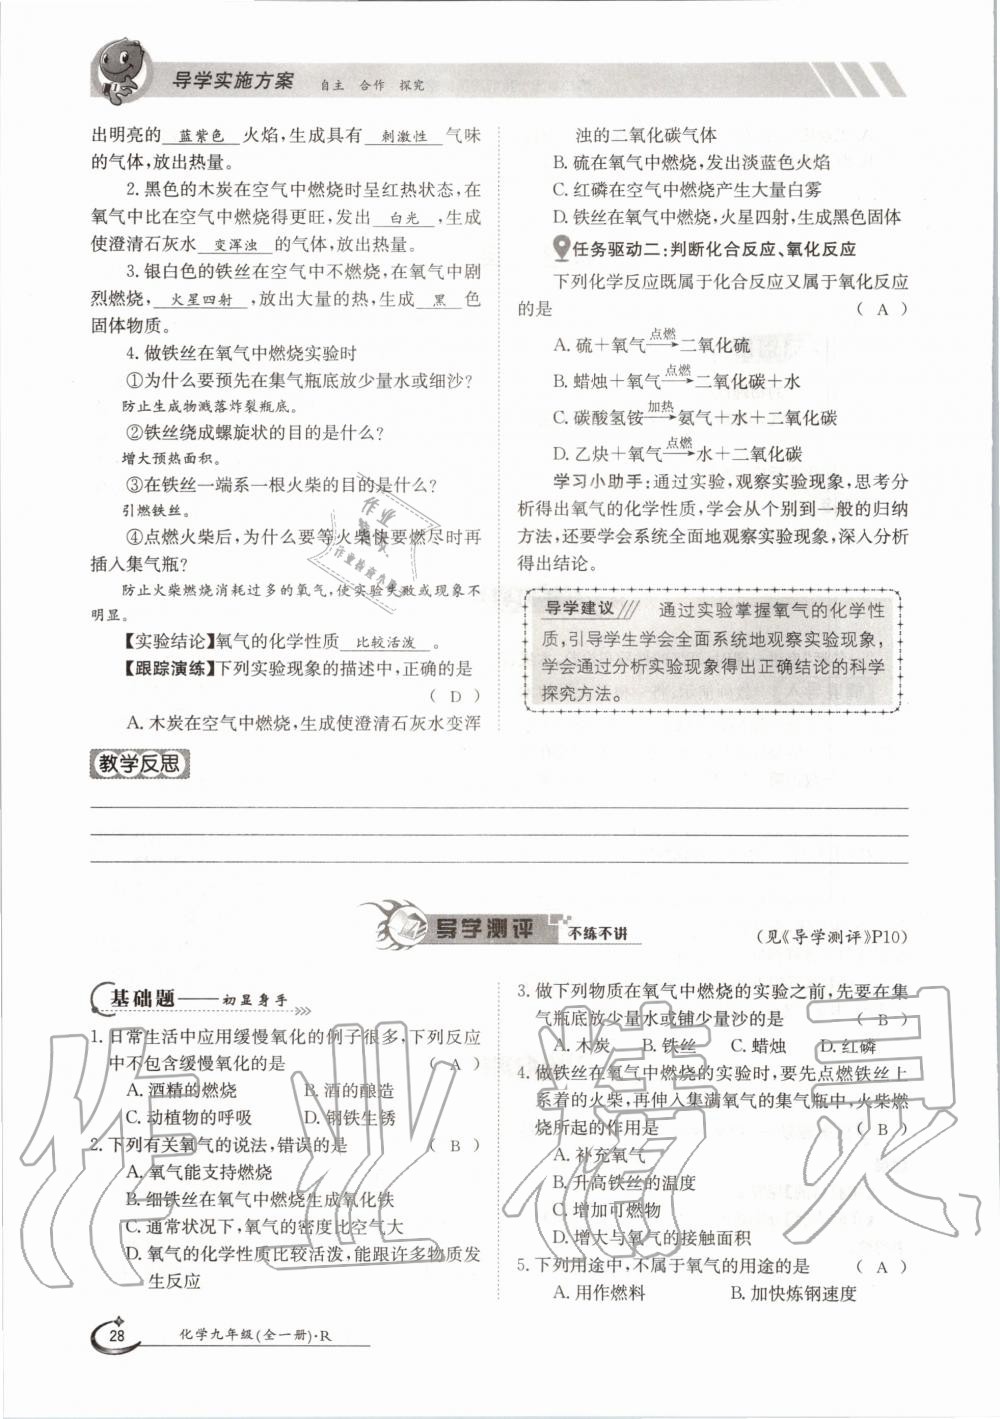 导学实施方案 自主 合作 探究
出明亮的 蓝紫色 火焰,生成具有 刺激性 气味
的气体,放出热量。
2. 黑色的木炭在空气中燃烧时呈红热状态,在
氧气中比在空气中燃烧得更旺,发出 白光 ,生成
使澄清石灰水 变浑浊 的气体,放出热量。
3. 银白色的铁丝在空气中不燃烧,在氧气中剧
烈燃烧, 火星四射 ,放出大量的热,生成 黑 色
固体物质。
4. 做铁丝在氧气中燃烧实验时
①为什么要预先在集气瓶底放少量水或细沙?
防止生成物溅落炸裂瓶底。
②铁丝绕成螺旋状的目的是什么?
增大预热面积。
③在铁丝一端系一根火柴的目的是什么?
引燃铁丝。
④点燃火柴后,为什么要等火柴快要燃尽时再
插入集气瓶?
防止火柴燃烧消耗过多的氧气,使实验失败或现象不
明显。
【实验结论】氧气的化学性质 比较活泼 。
【跟踪演练】下列实验现象的描述中,正确的是
( D )
A. 木炭在空气中燃烧,生成使澄清石灰水变浑
浊的二氧化碳气体
B. 硫在氧气中燃烧,发出淡蓝色火焰
C. 红磷在空气中燃烧产生大量白雾
D. 铁丝在氧气中燃烧,火星四射,生成黑色固体
任务驱动二:判断化合反应、氧化反应
下列化学反应既属于化合反应又属于氧化反应
的是 ( A )
A. 硫+氧气 点燃→ 二氧化硫
B. 蜡烛+氧气 点燃→ 二氧化碳+水
C. 碳酸氢铵 加热→ 氨气+水+二氧化碳
D. 乙炔+氧气 点燃→ 水+二氧化碳
学习小助手:通过实验,观察实验现象,思考分
析得出氧气的化学性质,学会从个别到一般的归纳
方法,还要学会系统全面地观察实验现象,深入分析
得出结论。
导学建议 通过实验掌握氧气的化学性
质,引导学生学会全面系统地观察实验现象,
学会通过分析实验现象得出正确结论的科学
探究方法。
教学反思
导学测评 不练不讲
(见《导学测评》P10)
基础题——初显身手
1. 日常生活中应用缓慢氧化的例子很多,下列反应
中不包含缓慢氧化的是 ( A )
A. 酒精的燃烧 B. 酒的酿造
C. 动植物的呼吸 D. 钢铁生锈
2. 下列有关氧气的说法,错误的是 ( B )
A. 氧气能支持燃烧
B. 细铁丝在氧气中燃烧生成氧化铁
C. 通常状况下,氧气的密度比空气大
D. 氧气的化学性质比较活泼,能跟许多物质发
生反应
3. 做下列物质在氧气中燃烧的实验之前,先要在集
气瓶底放少量水或铺少量沙的是 ( B )
A. 木炭 B. 铁丝 C. 蜡烛 D. 红磷
4. 做铁丝在氧气中燃烧的实验时,要先点燃铁丝上
系着的火柴,再伸入集满氧气的集气瓶中,火柴燃
烧所起的作用是 ( B )
A. 补充氧气
B. 升高铁丝的温度
C. 增加可燃物
D. 增大与氧气的接触面积
5. 下列用途中,不属于氧气的用途的是 ( A )
A. 用作燃料 B. 加快炼钢速度
28 化学九年级(全一册)·R
作业精灵